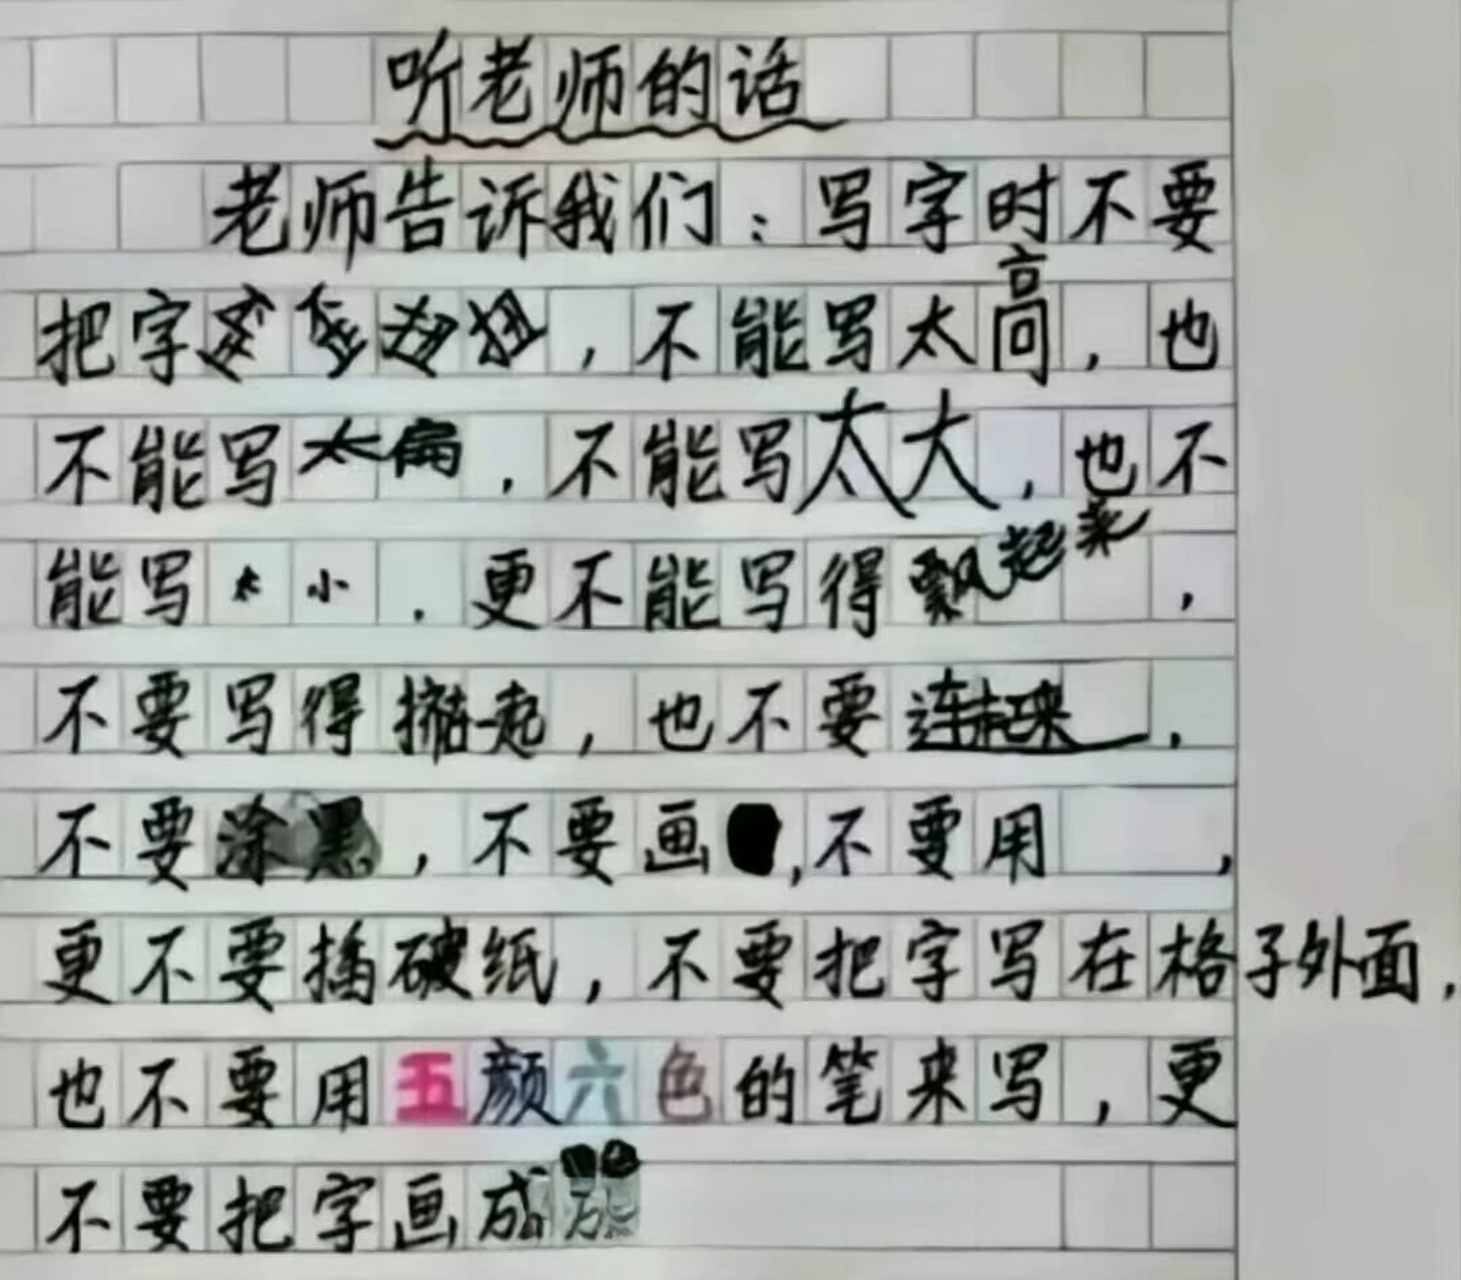 听老师的话
老师告诉我们：写字时不要
把字歪歪扭扭，不能写太高，也
不能写太扁，不能写太大，也不
能写太小，更不能写得飘起来，
不要写得挤一起，也不要连起来，
不要涂黑，不要画，不要用，
更不要插破纸，不要把字写在格子外面，
也不要用五颜六色的笔来写，更
不要把字画成